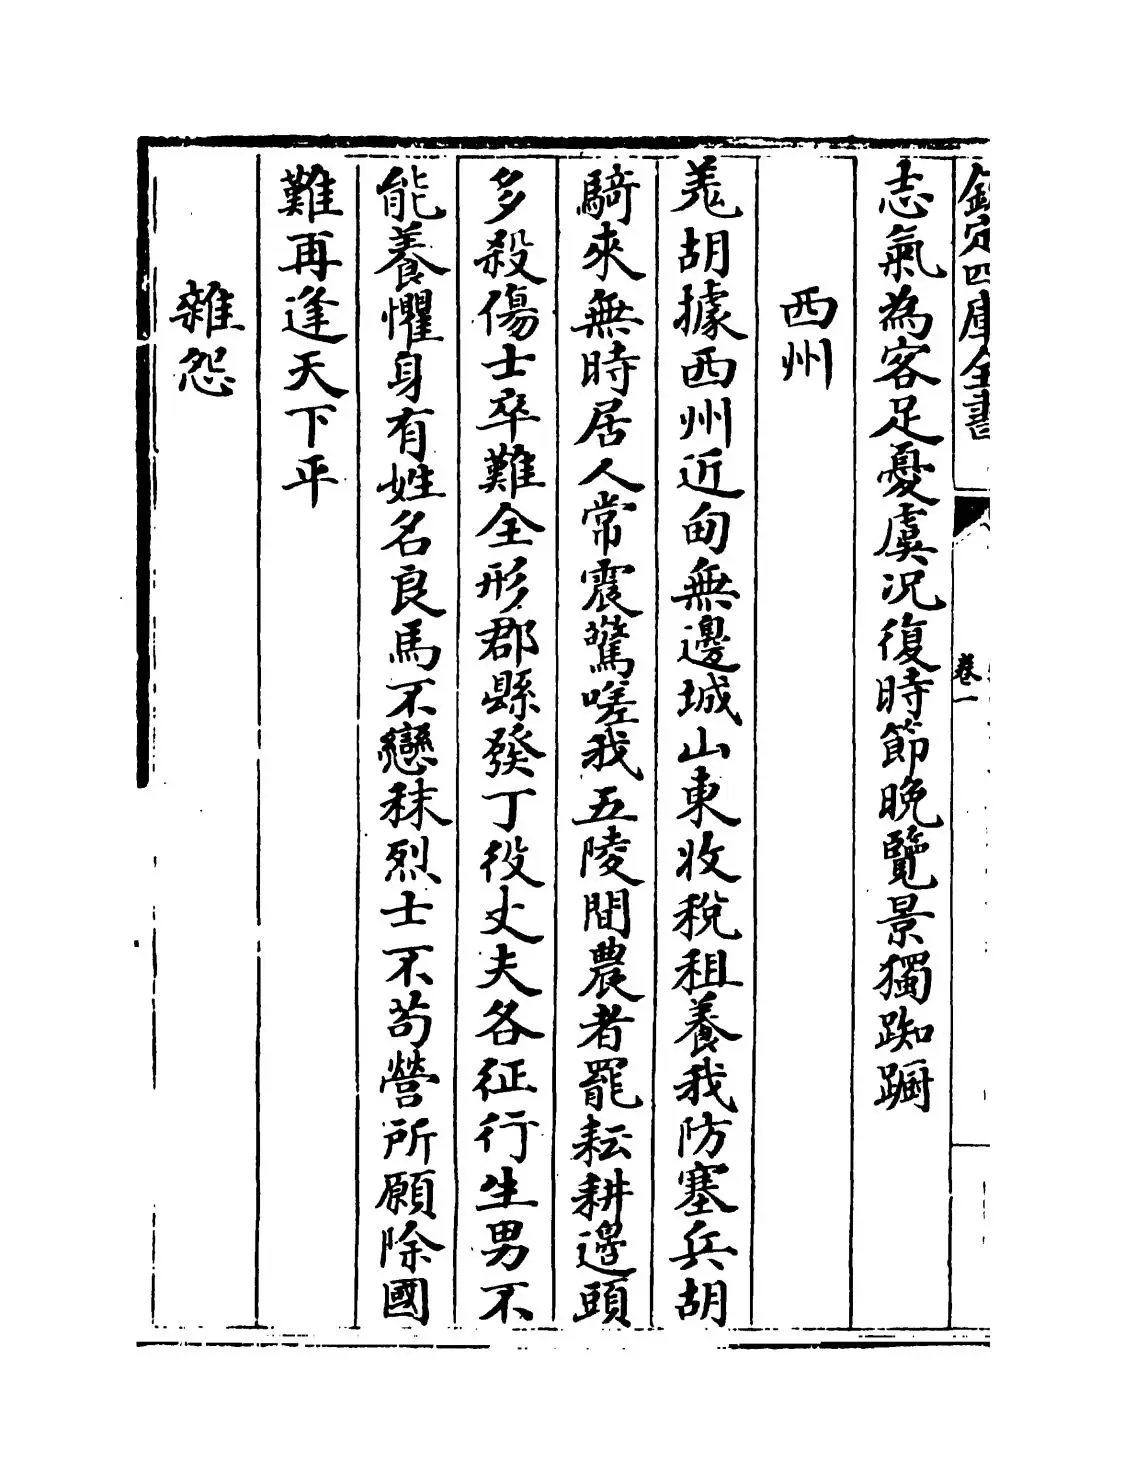 欽定四庫全書
卷一
志氣為客足憂虞况復時節晚覽景獨踟蹰
西州
羗胡據西州近甸無邊城山東收稅租養我防塞兵胡
騎來無時居人常震驚嗟我五陵間農者罷耘耕邊頭
多殺傷士卒難全形郡縣發丁役丈夫各征行生男不
能養懼身有姓名良馬不戀秣烈士不茍營所願除國
難再逢天下平
雜怨